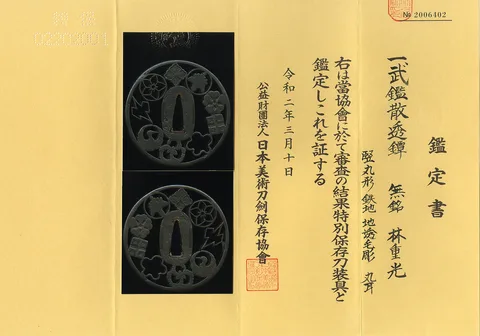 № 2006402
鑑定書
一、武鑑散透鐔　無銘　林重光
竪丸形 鉄地 地透毛彫 丸耳
右は當協會に於て審査の結果特別保存刀装具と
鑑定しこれを証する
令和二年三月十日
公益財團法人 日本美術刀劍保存協會